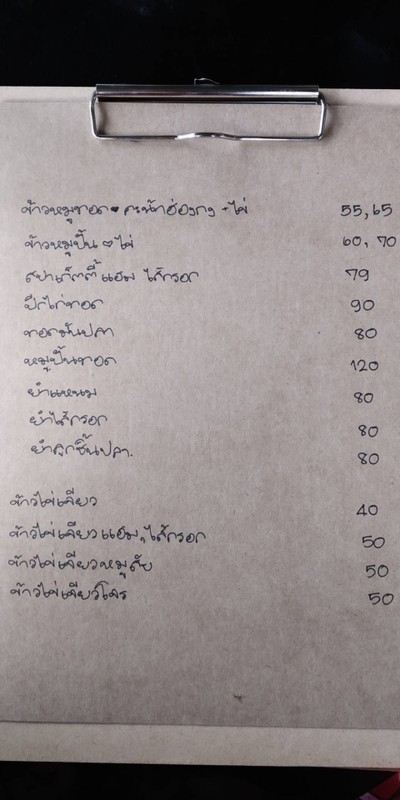 ข้าวหมูทอด คะน้าฮ่องกง + ไข่ 55, 65
ข้าวหมูปั้น ไข่ 60, 70
สปาเก็ตตี้แฮม ไส้กรอก 79
ปีกไก่ทอด 90
ทอดมันปลา 80
หมูปั้นทอด 120
ยำแหนม 80
ยำไส้กรอก 80
ยำลูกชิ้นปลา. 80
ข้าวไข่เจียว 40
ข้าวไข่เจียวแฮม, ไส้กรอก 50
ข้าวไข่เจียวหมูสับ 50
ข้าวไข่เจียว 50